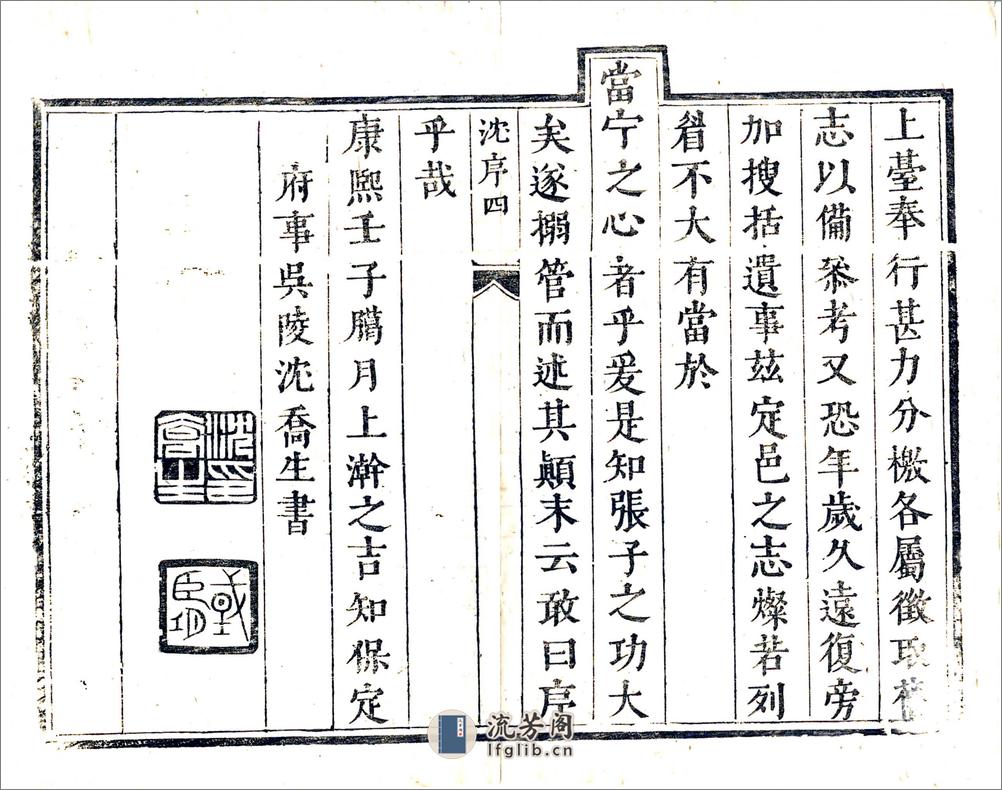 上臺奉行甚力分檄各屬徵取舊
志以備叅考又恐年歲久遠復旁
加搜括遺事玆定邑之志燦若列
眉不大有當於
當宁之心者乎爰是知張子之功大
矣遂搦管而述其顚末云敢曰序
沈序四
乎哉
康熙壬子臈月上澣之吉知保定
府事吳陵沈喬生書
流芳阁
lfglib.cn